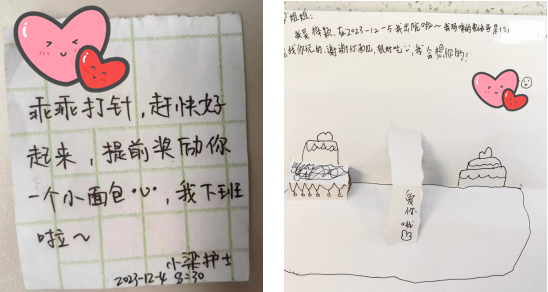 乖乖打针,赶快好
起来,提前奖励你
一个小面包·ᴗ·,我下班
啦～
小梁护士
2023-12-4 8:30
姐姐:
在2023-12-5我出院啦～我
找你玩的,谢谢你
很好吃
我会想你的!
爱你哦